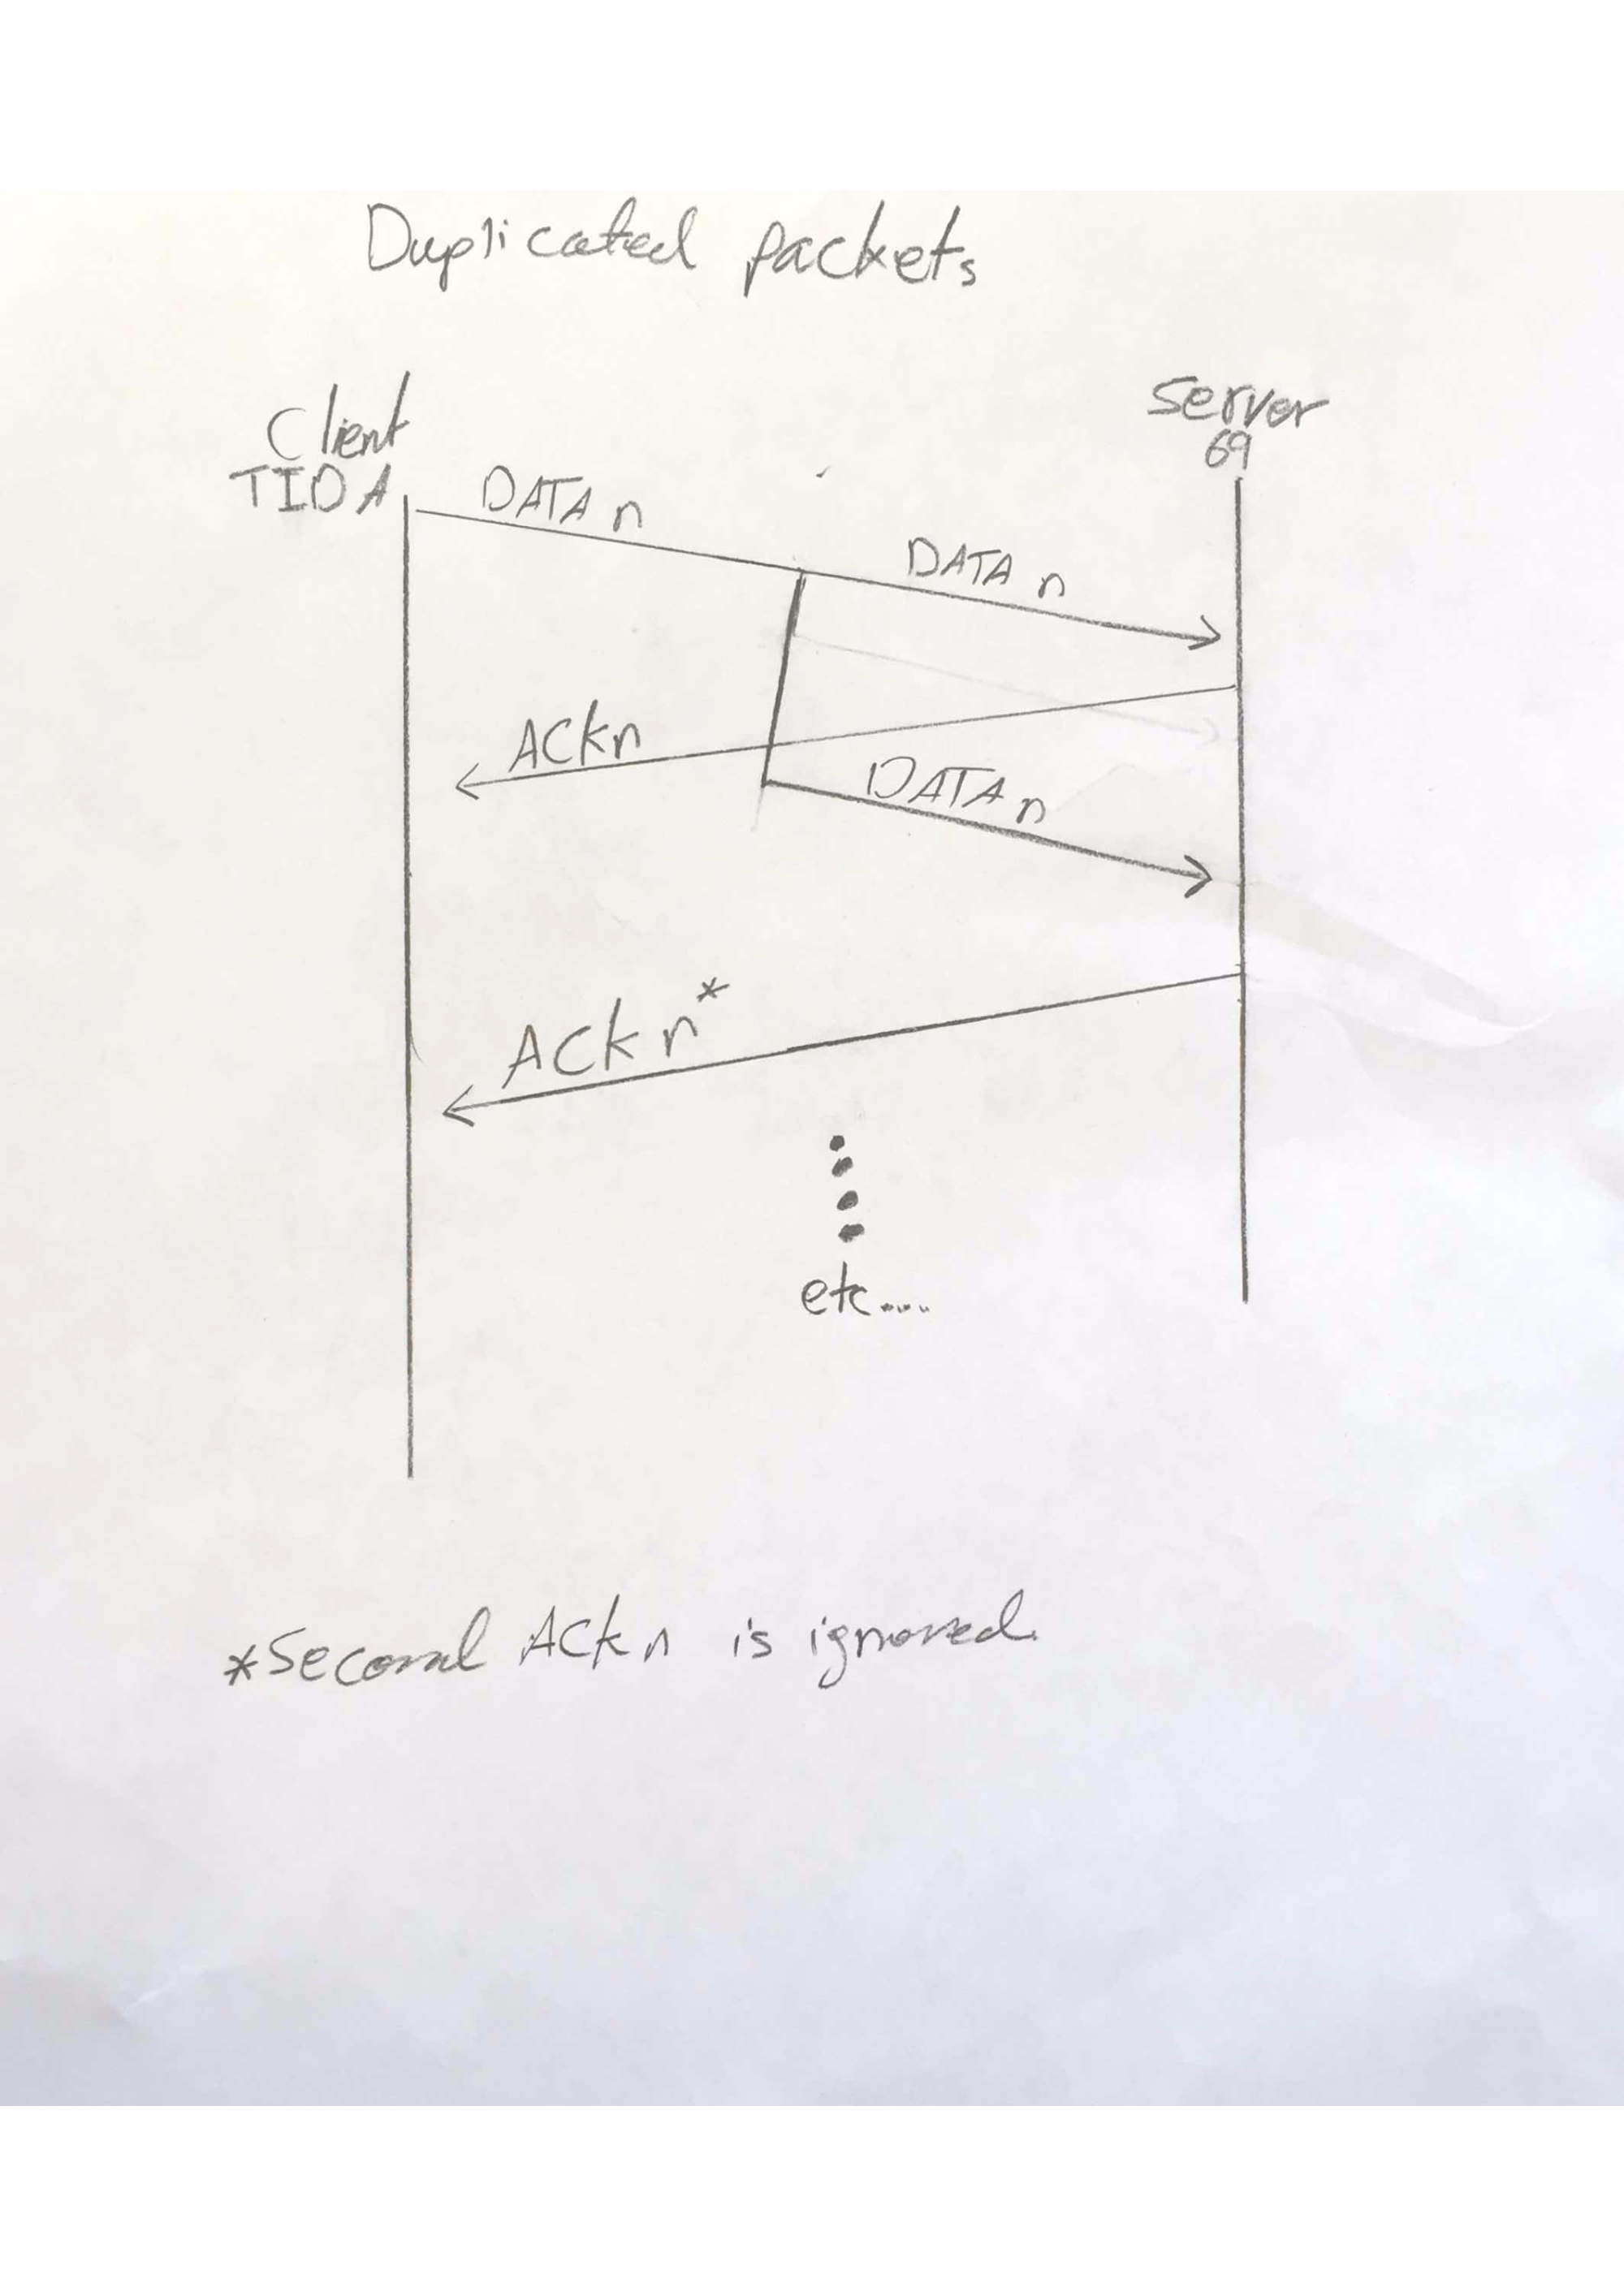 Duplicated packets
Client
TID A
Server
69
DATA n
DATA n
ACK n
DATA n
ACK n*
etc....
*Second ACK n is ignored.